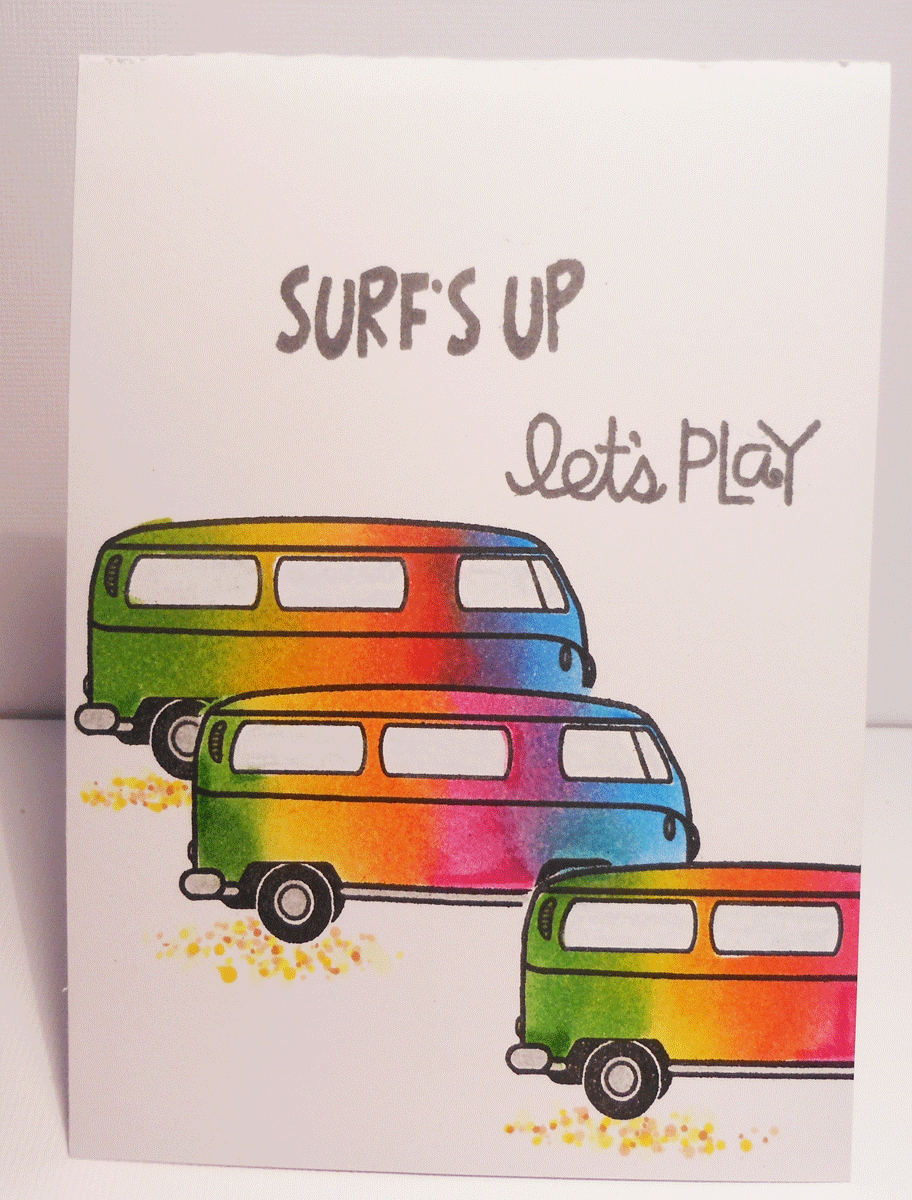 SURF'S UP
let's PLaY